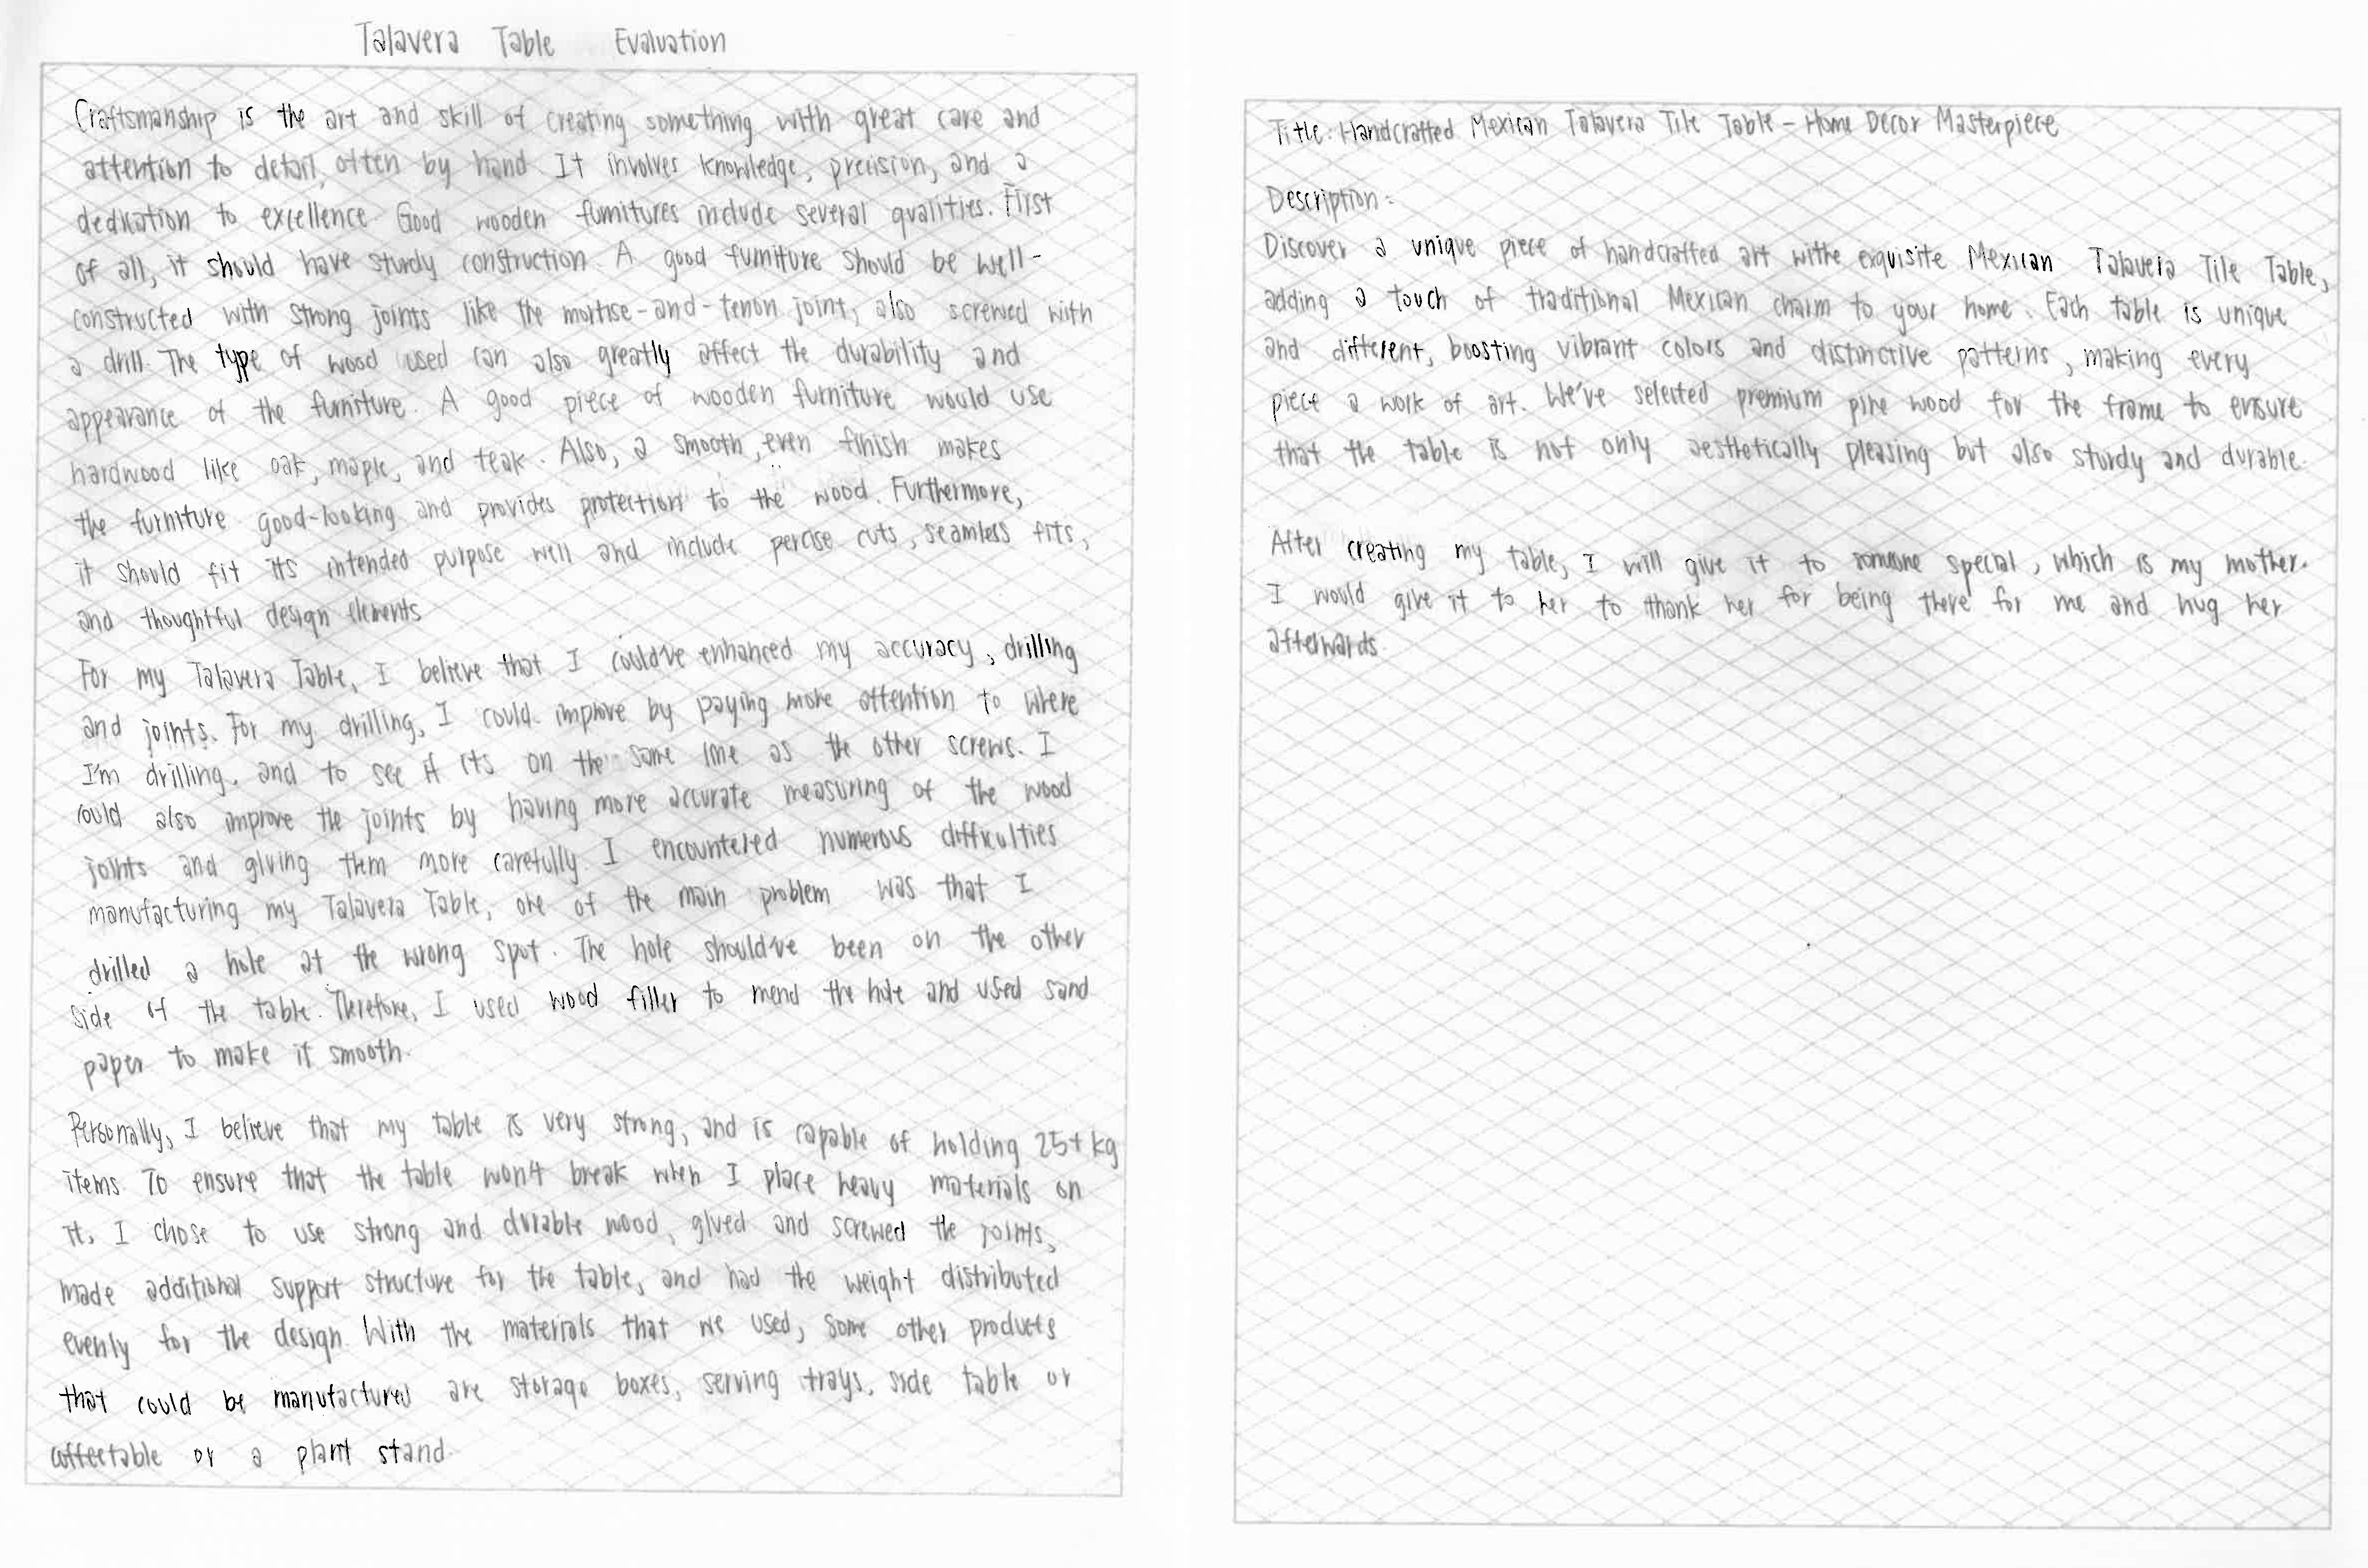 Talavera Table Evaluation
Craftsmanship is the art and skill of creating something with great care and
attention to detail, often by hand. It involves knowledge, precision, and a
dedication to excellence. Good wooden furnitures include several qualities. First
of all, it should have sturdy construction. A good furniture should be well-
constructed with strong joints like the mortise-and-tenon joint, also screwed with
a drill. The type of wood used can also greatly affect the durability and
appearance of the furniture. A good piece of wooden furniture would use
hardwood like oak, maple, and teak. Also, a smooth, even finish makes
the furniture good-looking and provides protection to the wood. Furthermore,
it should fit its intended purpose well and include percise cuts, seamless fits,
and thoughtful design elements
For my Talavera Table, I believe that I could've enhanced my accuracy, drilling
and joints. For my drilling, I could improve by paying more attention to where
I'm drilling. and to see if its on the same line as the other screws. I
could also improve the joints by having more accurate measuring of the wood
joints and gluing them more carefully. I encountered numerous difficulties
manufacturing my Talavera Table, one of the main problem was that I
drilled a hole at the wrong spot. The hole should've been on the other
side of the table. Therefore, I used wood filler to mend the hole and used sand
paper to make it smooth.
Personally, I believe that my table is very strong, and is capable of holding 25+ kg
items. To ensure that the table won't break when I place heavy materials on
it, I chose to use strong and durable wood, glued and screwed the joints,
made additional support structure for the table, and had the weight distributed
evenly for the design. With the materials that we used, some other products
that could be manufactured are storage boxes, serving trays, side table or
coffeetable or a plant stand.
Title: Handcrafted Mexican Talavera Tile Table - Home Decor Masterpiece
Description:
Discover a unique piece of handcrafted art withe exquisite Mexican Talavera Tile Table,
adding a touch of traditional Mexican charm to your home. Each table is unique
and different, boosting vibrant colors and distinctive patterns, making every
piece a work of art. We've selected premium pine wood for the frame to ensure
that the table is not only aesthetically pleasing but also sturdy and durable.
After creating my table, I will give it to someone special, which is my mother.
I would give it to her to thank her for being there for me and hug her
afterwards.